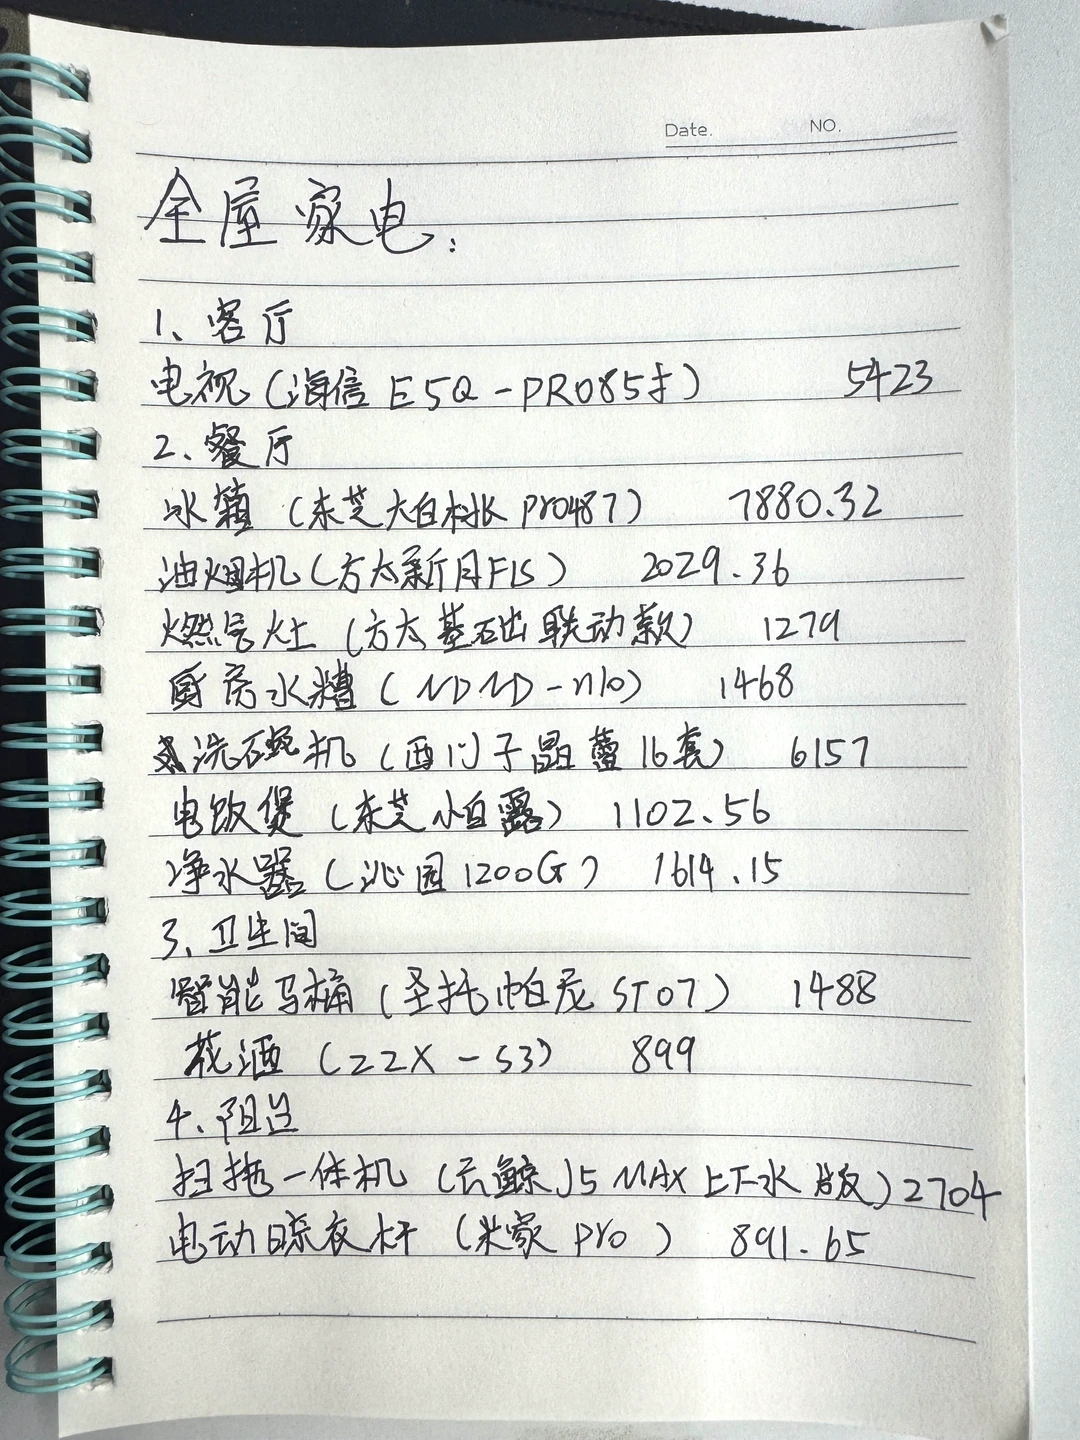 Date.
NO.
全屋家电:
1、客厅
电视(海信E5Q-PRO85寸) 5423
2、餐厅
冰箱(东芝大白桃 pro487) 7880.32
油烟机(方太新月F1S) 2029.36
燃气灶(方太基石出联动款) 1279
厨房水槽(NDND-n10) 1468
洗碗机(西门子晶蕾16套) 6157
电饭煲(东芝小白露) 1102.56
净水器(沁园1200G) 1614.15
3、卫生间
智能马桶(圣托帕尼ST07) 1488
花洒(ZZX-S3) 899
4、阳台
扫拖一体机(云鲸J5 MAX上下水版) 2704
电动晾衣杆(米家pro) 891.65